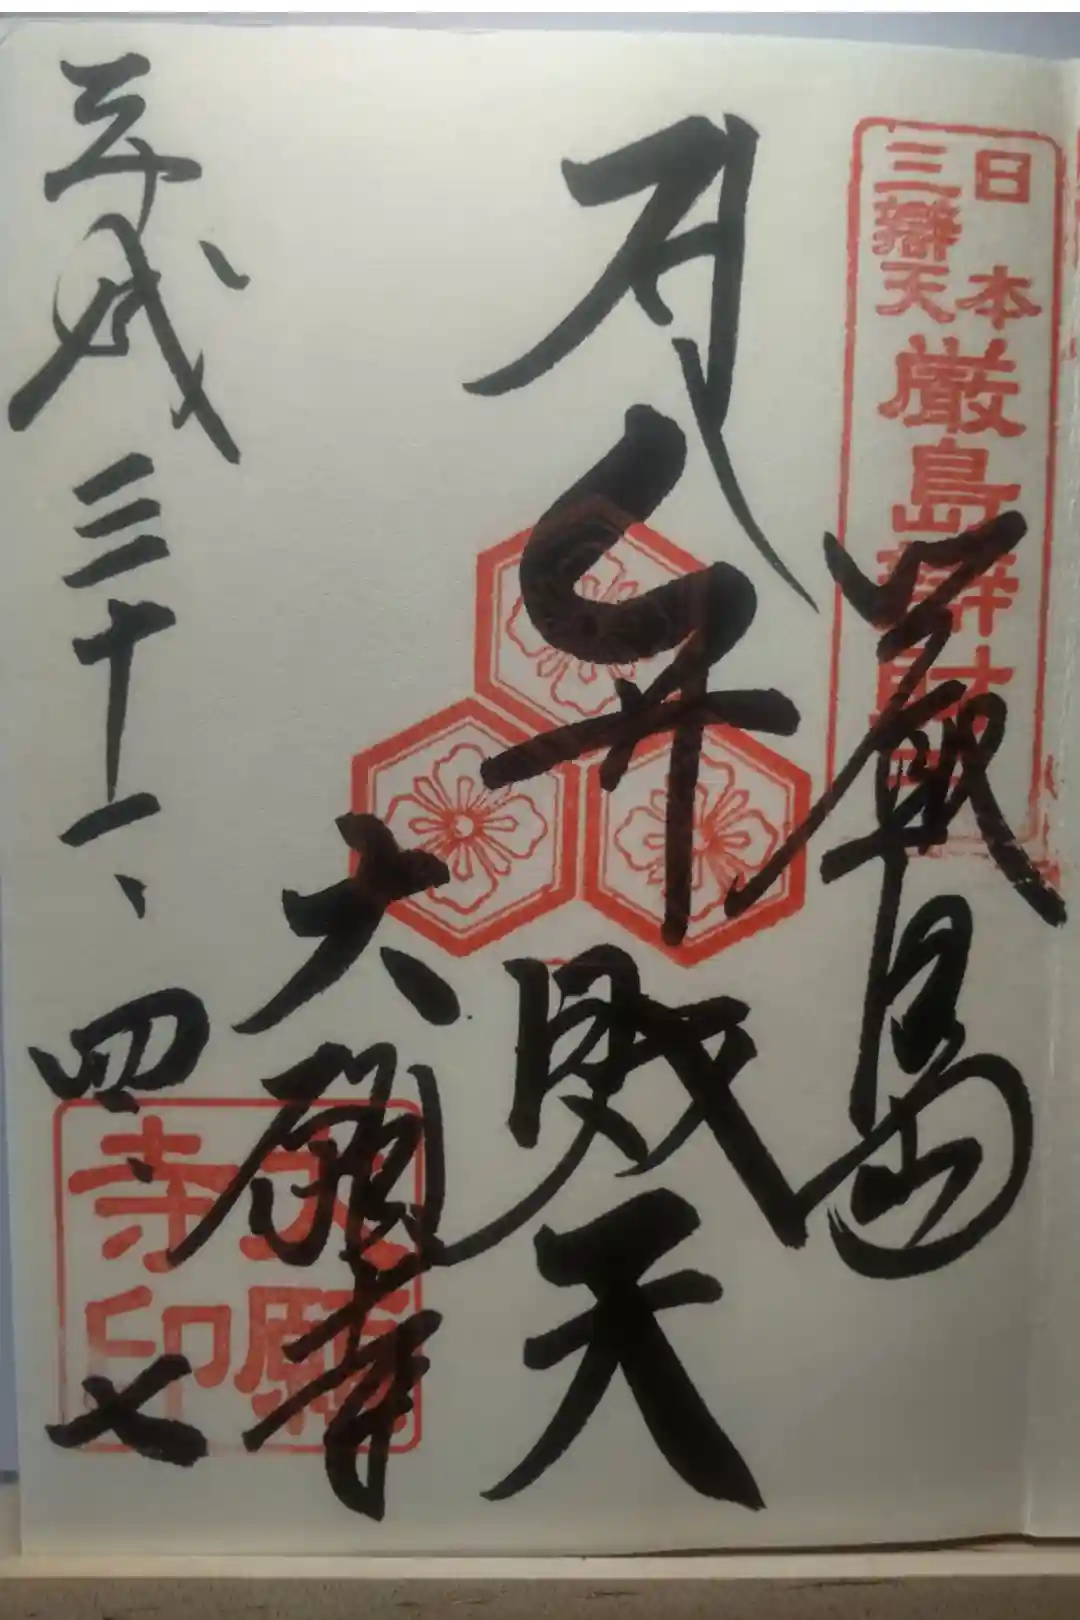 日本
三辯天
厳島辯財天
厳島
弁財天
大願寺
大願
寺印
平成三十一、四、七